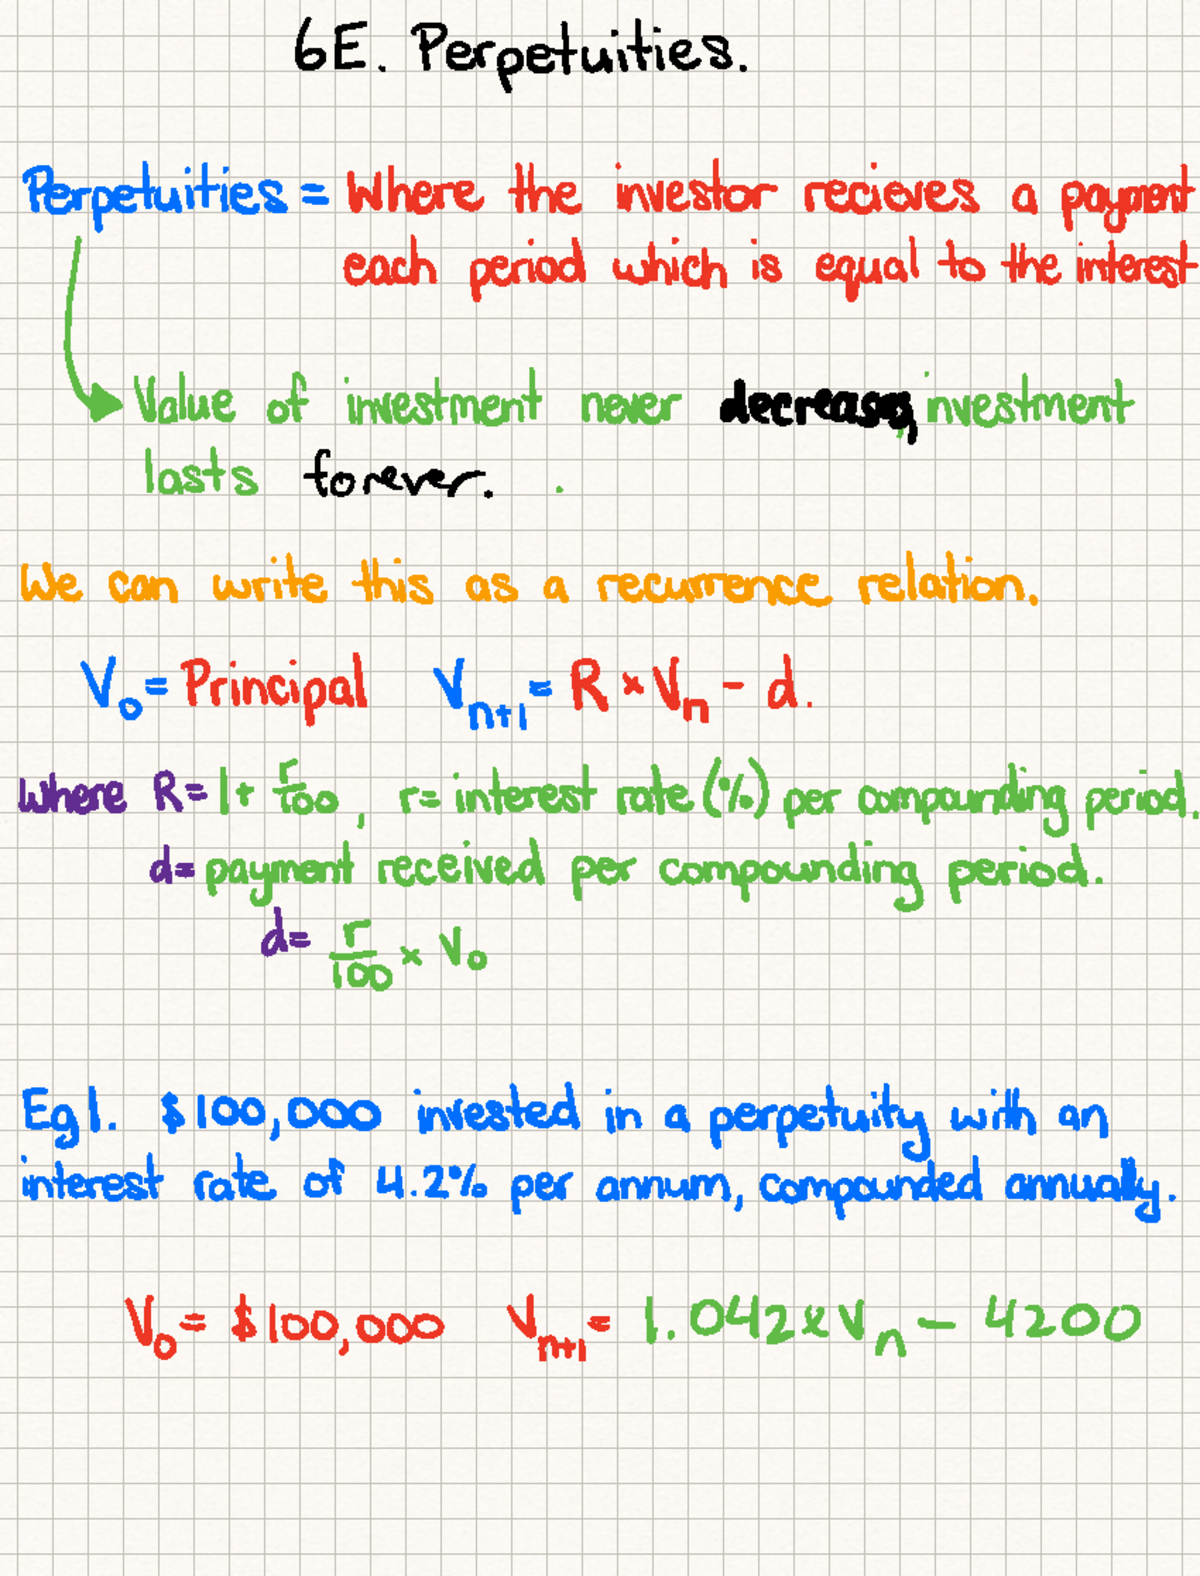 6E. Perpetuities.
Perpetuities = Where the investor recieves a payment
each period which is equal to the interest
Value of investment never decreases, investment
lasts forever.
We can write this as a recurrence relation.
V₀ = Principal Vₙ₊₁ = R × Vₙ - d.
Where R = 1 + r/100, r = interest rate (%) per compounding period.
d = payment received per compounding period.
d = r/100 × V₀
Eg1. $100,000 invested in a perpetuity with an
interest rate of 4.2% per annum, compounded annually.
V₀ = $100,000 Vₙ₊₁ = 1.042 × Vₙ - 4200